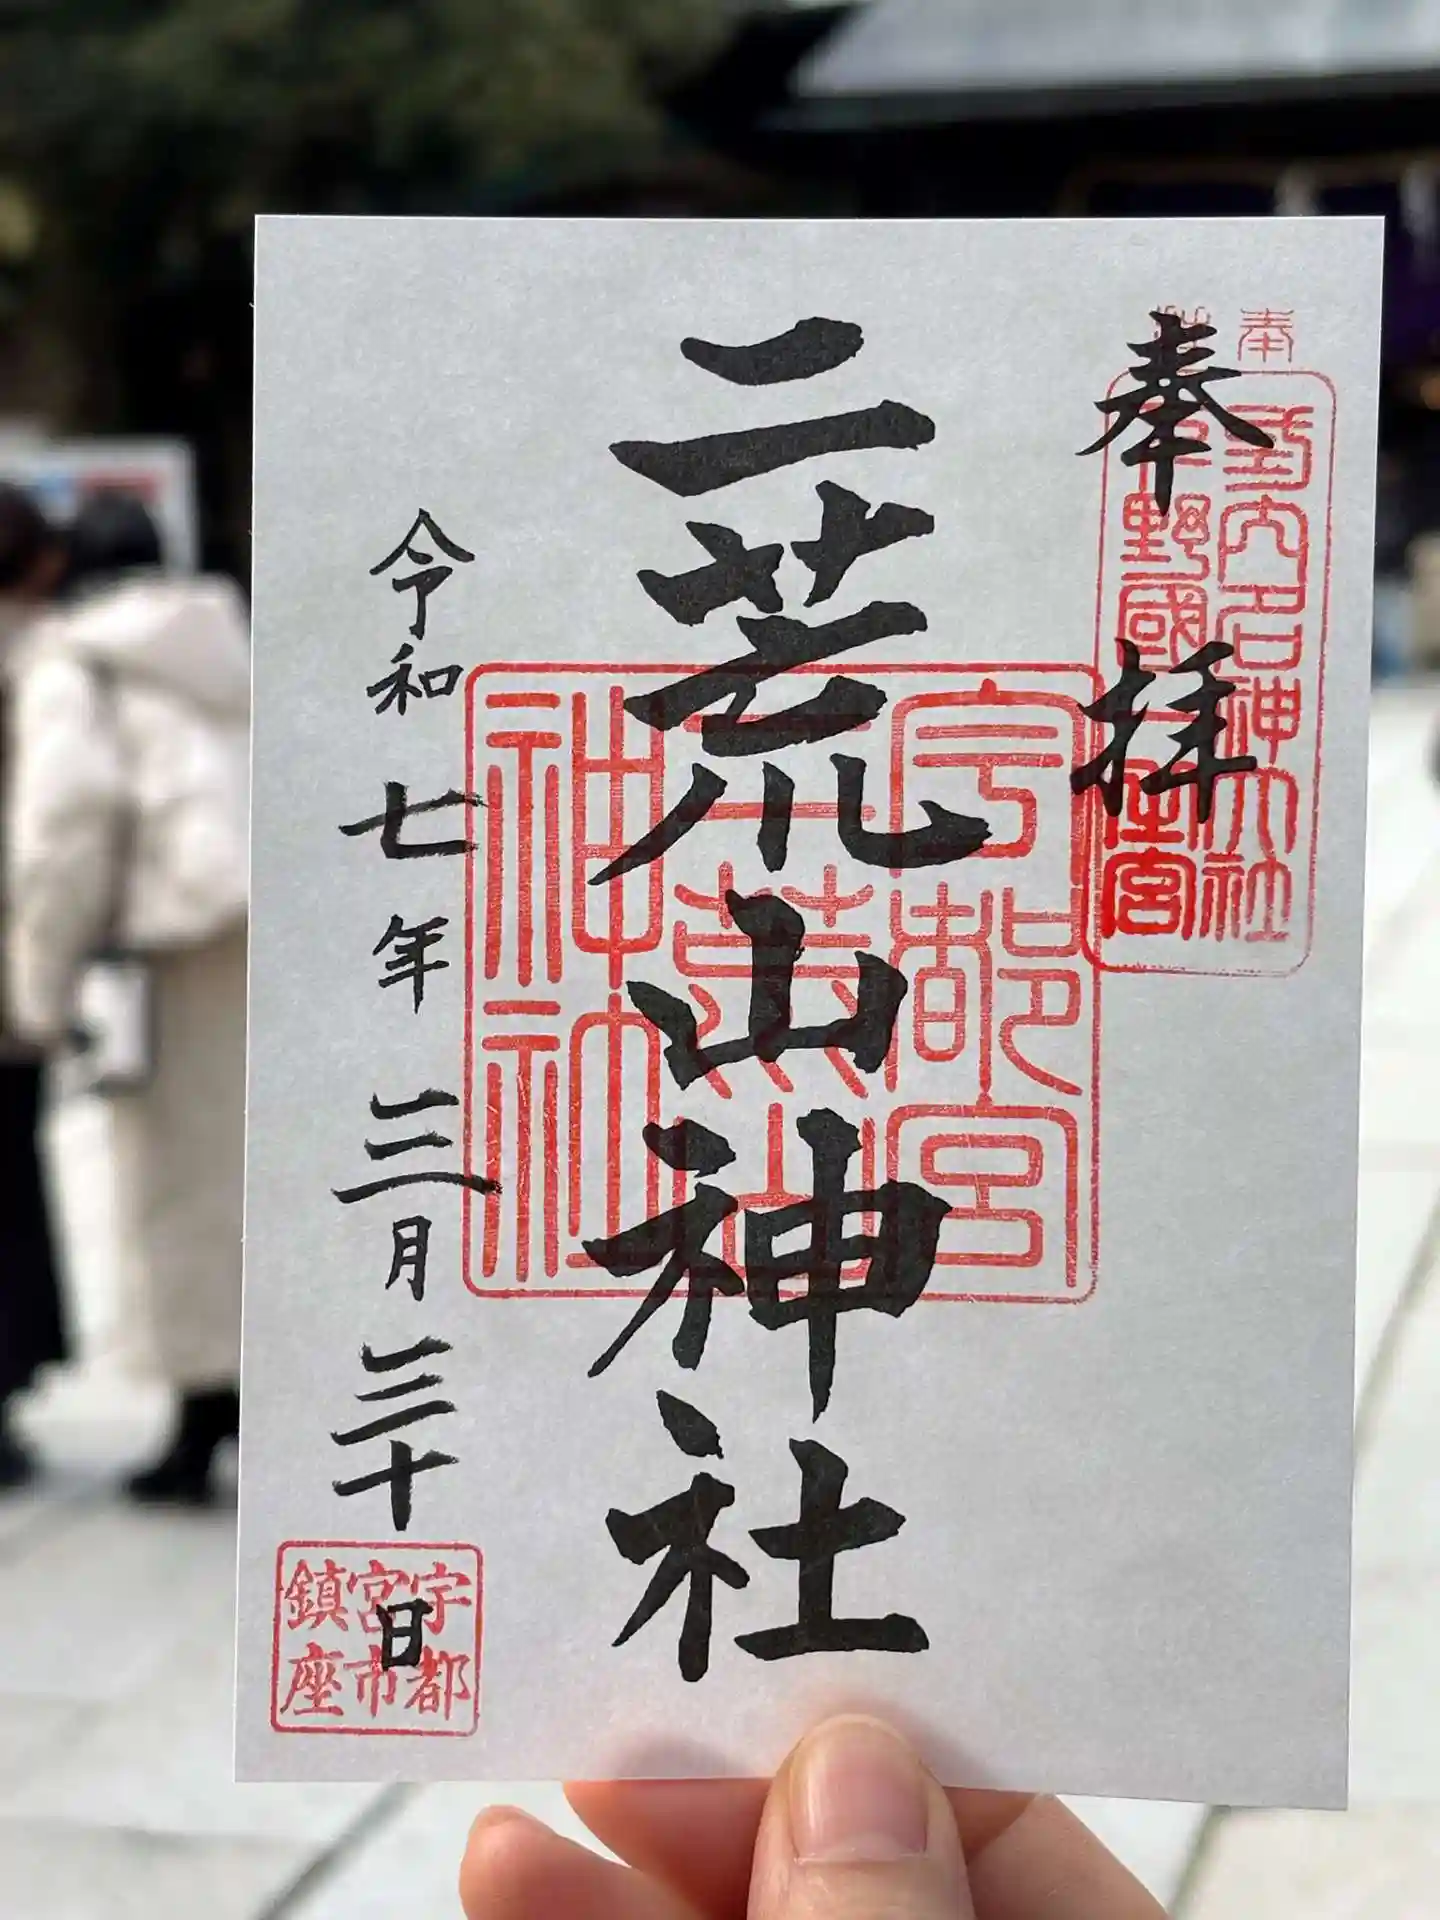 奉
式内名神大社
奉拝
二荒山神社
宇都宮
二荒山
神社
令和七年三月三十日
宇都
宮市
鎮座